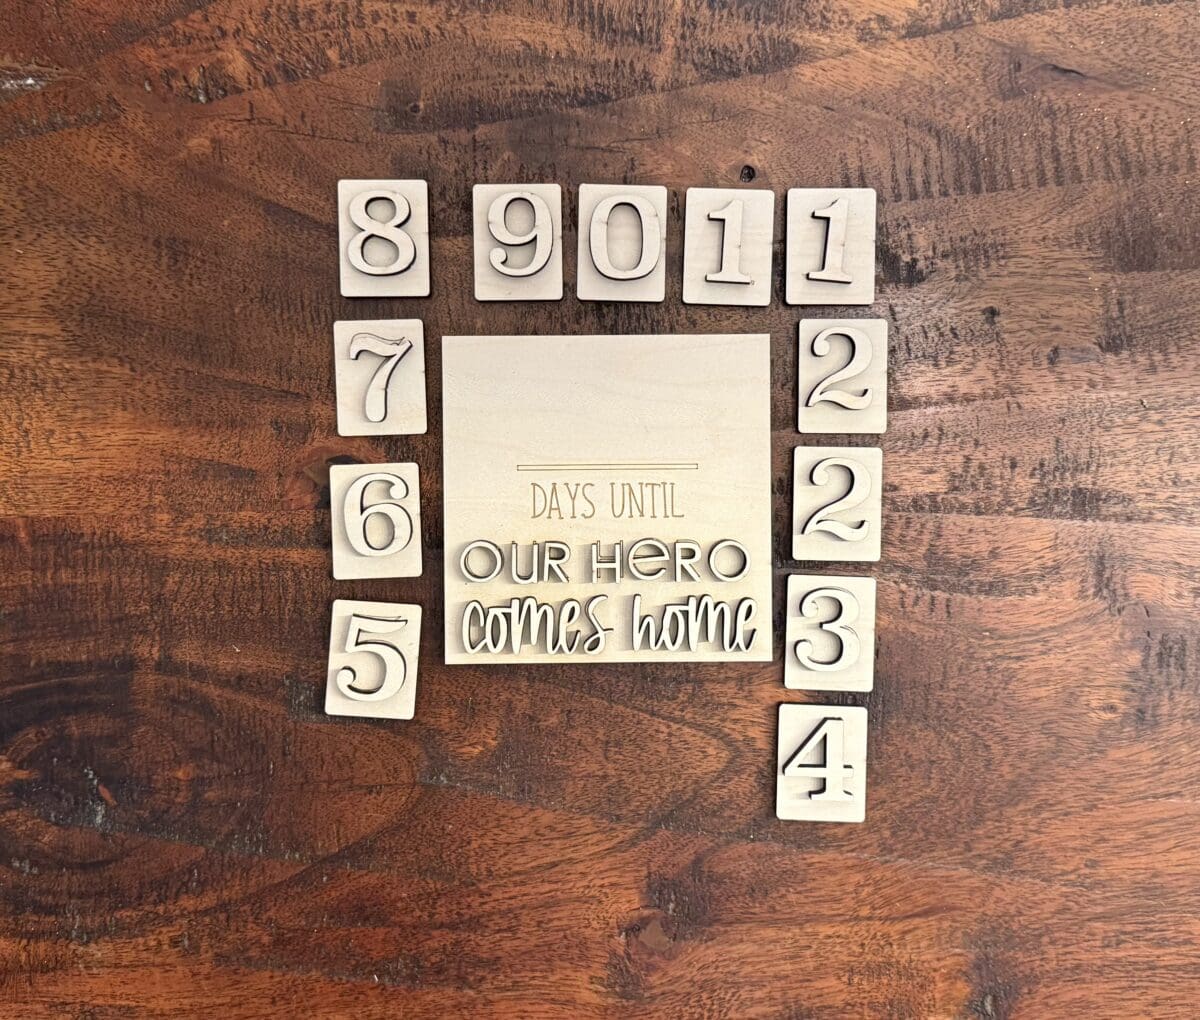 8 9 0 1 1
7 2
DAYS UNTIL
6 2
OUR HERO
comes home
5 3
4